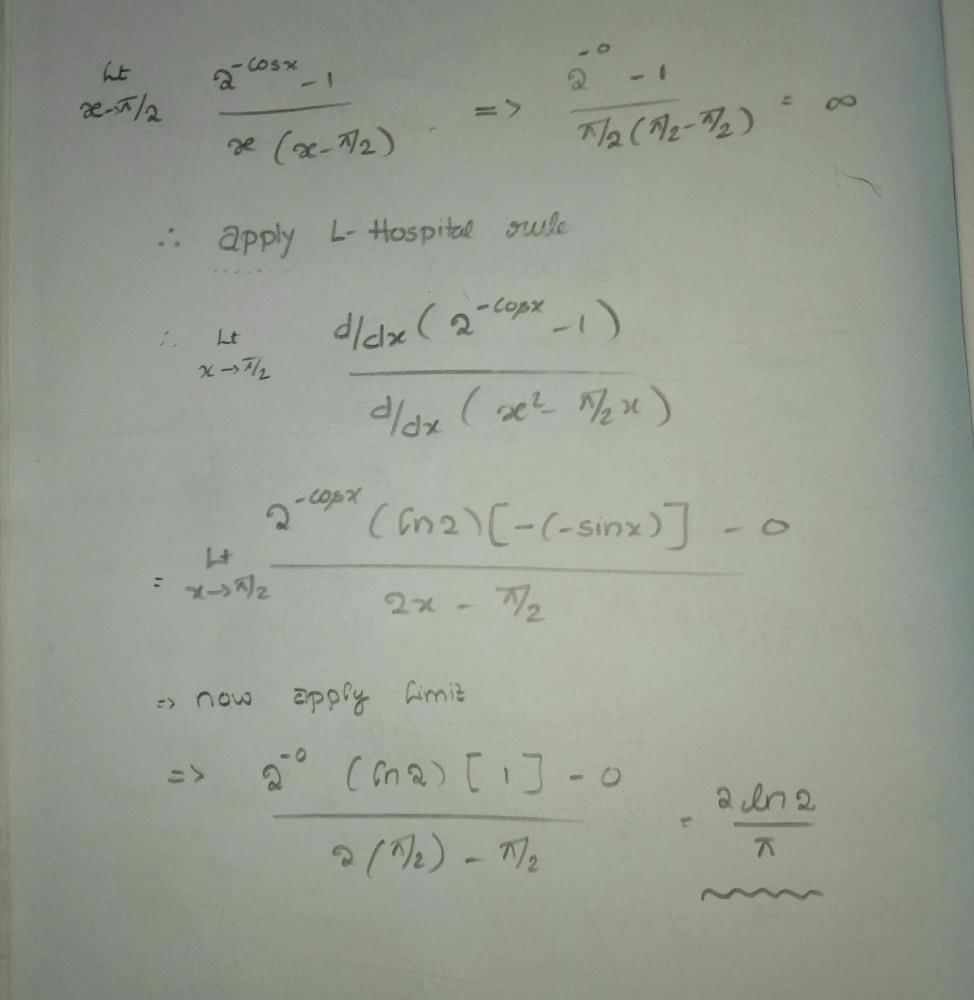 Lt x→π/2 (2^(-cosx) - 1) / (x (x - π/2)) => (2^(-0) - 1) / (π/2 (π/2 - π/2)) = ∞
∴ apply L-Hospital rule
∴ Lt x→π/2 (d/dx (2^(-cosx) - 1)) / (d/dx (x² - π/2 x))
= Lt x→π/2 (2^(-cosx) (ln2) [-(-sinx)] - 0) / (2x - π/2)
=> now apply limit
=> (2^(-0) (ln2) [1] - 0) / (2(π/2) - π/2) = 2 ln 2 / π